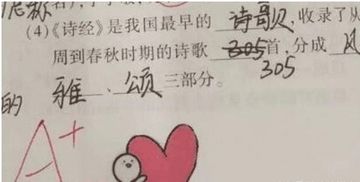 (4)《诗经》是我国最早的 诗歌 ,收录了
周到春秋时期的诗歌 305 首,分成 风
305
的 雅 、 颂 三部分。
A+